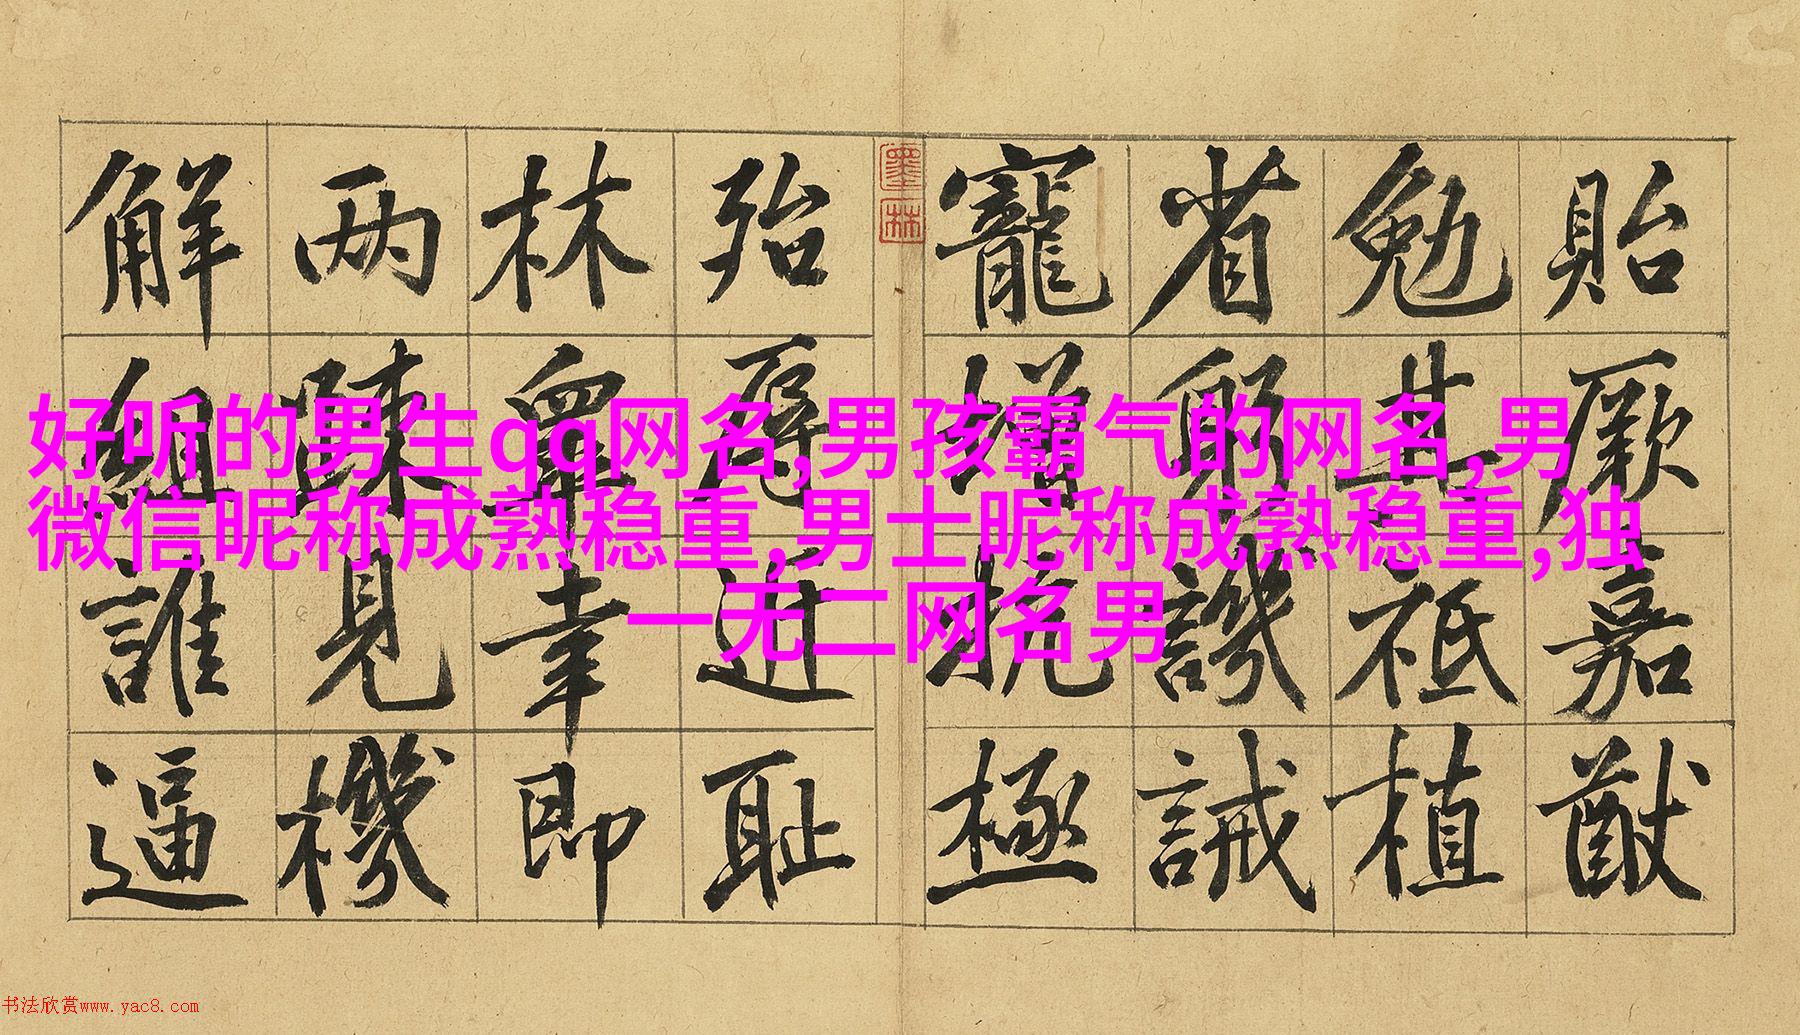 好听的男生qq网名,男孩霸气的网名,男
微信昵称成熟稳重,男士昵称成熟稳重,独
一无二网名男
貽厥嘉猷
勉其祗植
省躬譏誡
寵增抗極
墨林
殆辱近耻
林皋幸即
两疎見機
解組誰逼
书法欣赏www.yac8.com